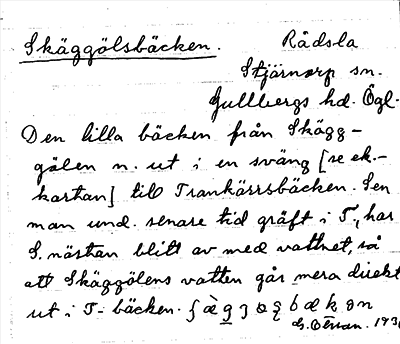 Skäggölsbäcken. Rådsla
Stjärnorp sn.
Gullbergs hd. Ögl.
Den lilla bäcken från Skägg-
gölen n. ut i en sväng [se ek.-
kartan] till Trankärrsbäcken. Sen
man und. senare tid gräft i T., har
S. nästan blitt av med vattnet, så
att Skäggölens vatten går mera direkt
ut i T- bäcken.